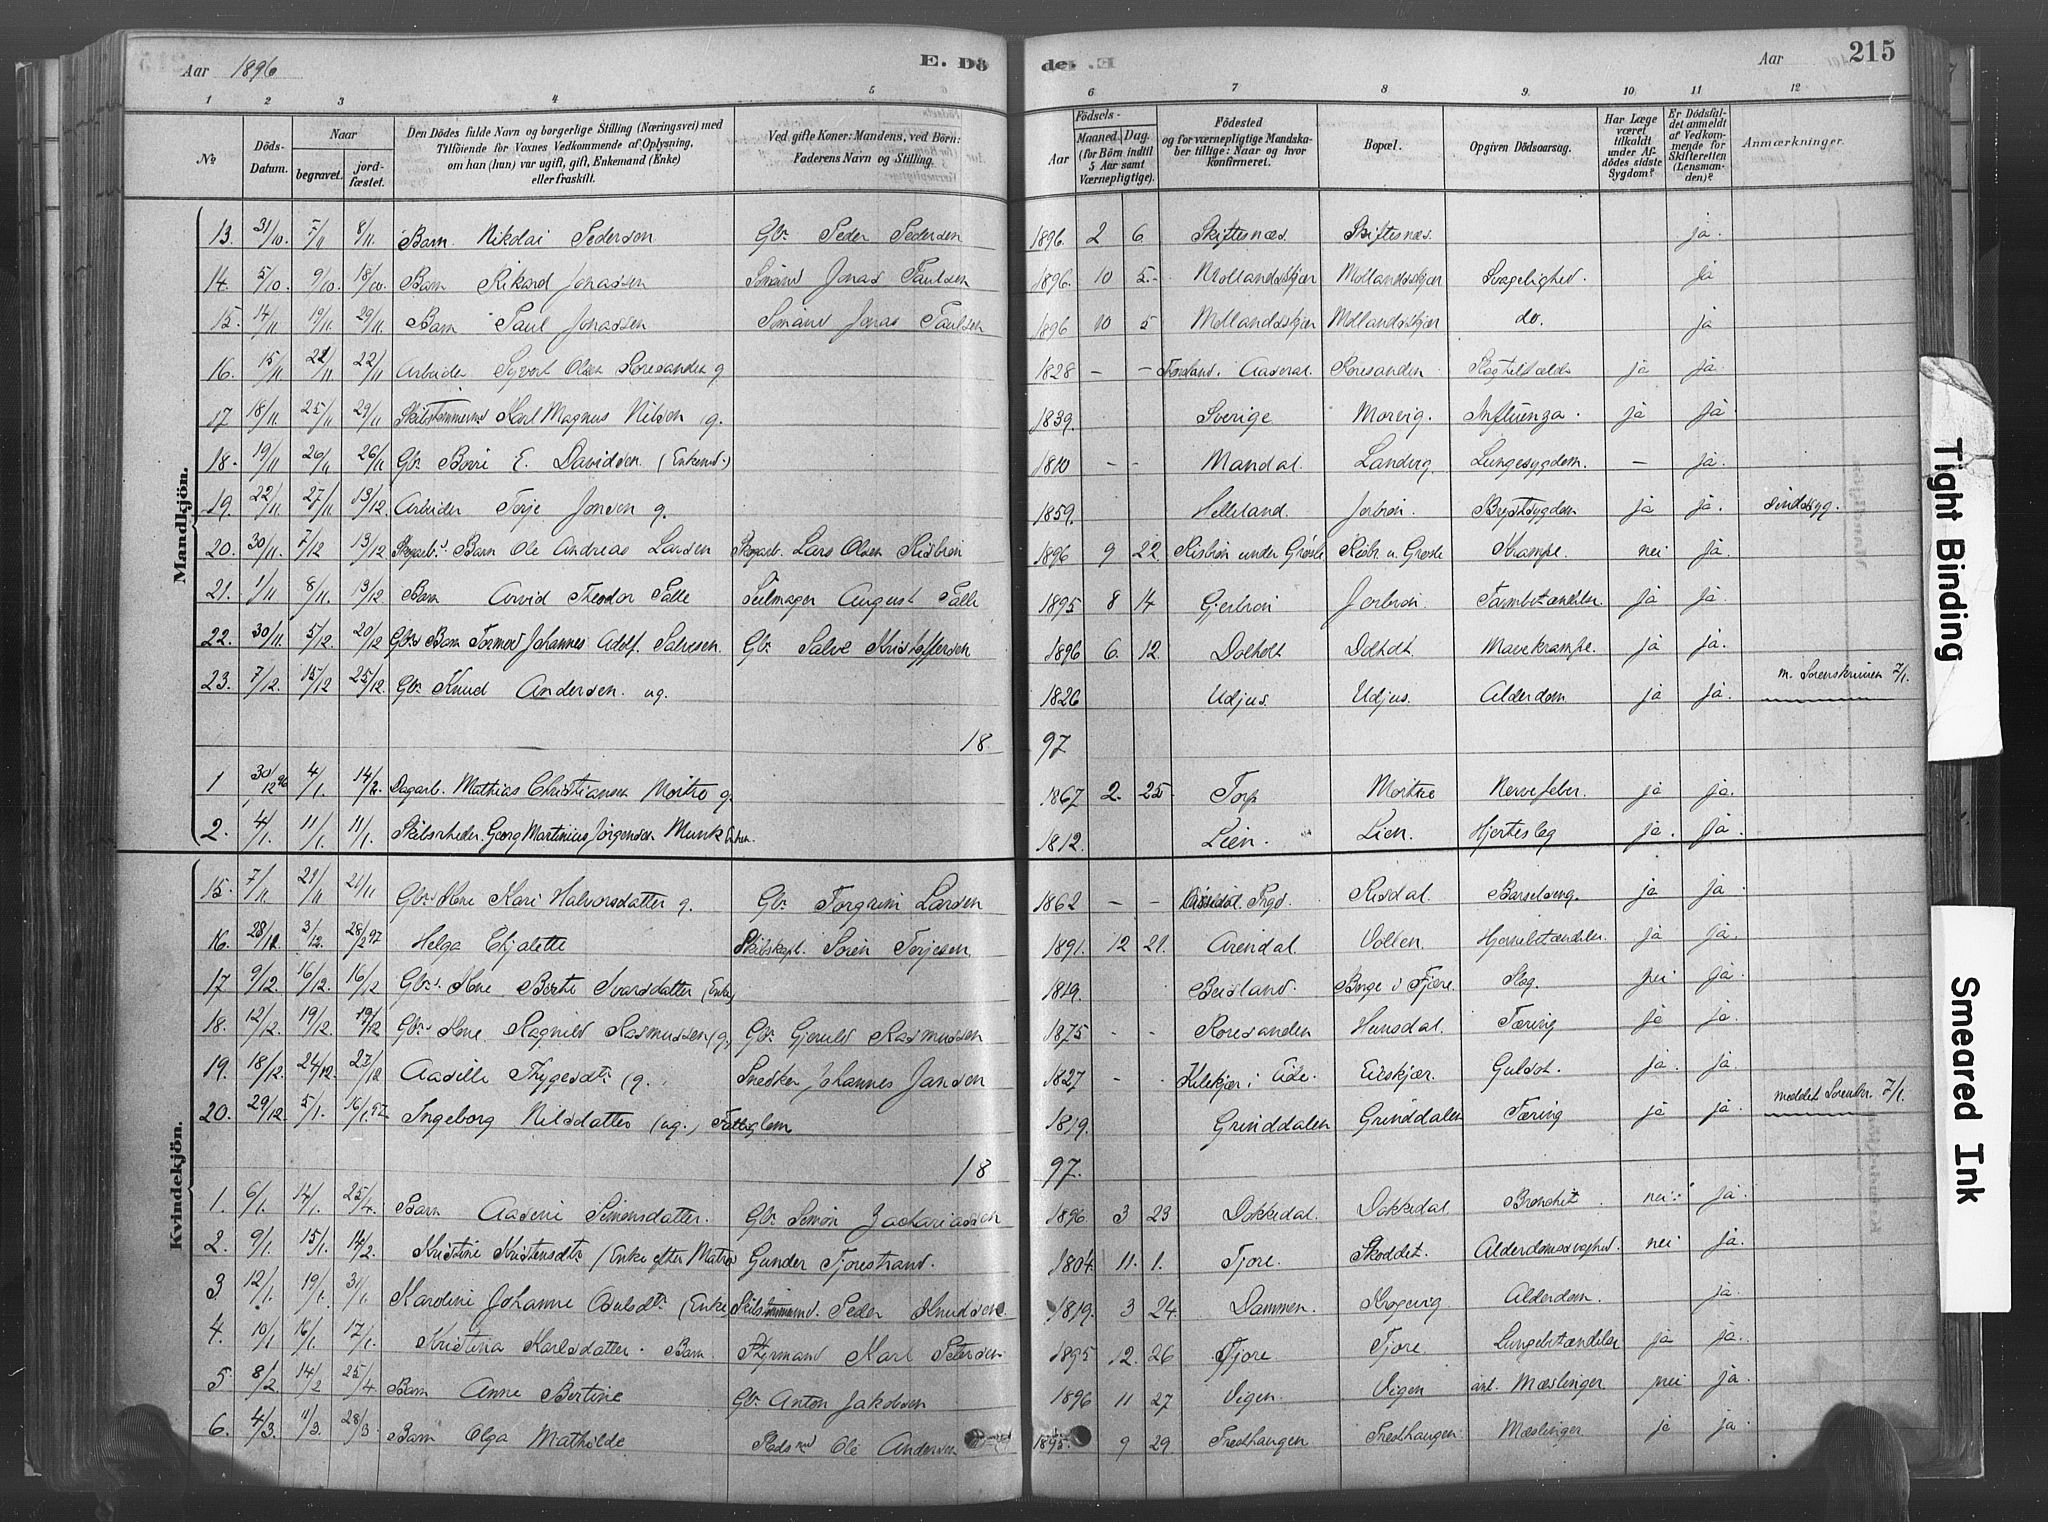 Aar 1896
E. Dö
de. E.
Aar
215
1 2 3 4 5 6 7 8 9. 10 11 12
No
Döds-Datum.
Naar
begravet.
jord-fæstet.
Den Dödes fulde Navn og borgerlige Stilling (Næringsvei) med Tilföiende for Voxnes Vedkommende af Oplysning, om han (hun) var ugift, gift, Enkemand (Enke) eller fraskilt.
Ved gifte Koner: Mandens, ved Börn: Faderens Navn og Stilling.
Födsels-
Aar
Maaned Dag.
(for Börn indtil 5 Aar samt Værnepligtige).
Födested og for værnepligtige Mandskaber tillige: Naar og hvor konfirmeret.
Bopæl.
Opgiven Dödsaarsag.
Har Læge været tilkaldt under Afdödes sidste Sygdom?
Er Dödsfaldet anmeldt af Vedkommende for Skifteretten (Lensmanden)?
Anmærkninger.
Mandkjön.
13. 31/10. 7/11 8/11. Barn Nikolai Pedersen Gbr Peder Pedersen 1896. 2 6. Skiftesnæs. Skiftesnæs. ja.
14. 5/10. 9/10. 18/10. Barn Rikard Jonassen Sömand Jonas Paulsen 1896. 10 5.- Mollandskjær Mollandskjær Svagelighed. ja
15. 14/11 19/11 29/11. Barn Paul Jonassen Sömand Jonas Paulsen 1896 10 5 Mollandskjær Mollandskjær do. ja
16. 15/11. 22/11 22/11 Arbeider Syvert Olsen Roresanden g. 1828 - - Aaseral Roresanden ja ja.
17 18/11. 25/11 29/11 Skibstømmermd Karl Magnus Nilsen g. 1839. Sverige Morvig. Influenza. ja ja.
18. 19/11 26/11 26/11 Gbr Borri E. Davidsen (Enkemd.) 1810 - - Mandal. Landvig. Lungesygdom. - ja.
19. 22/11 27/11 13/12. Arbeider Torje Jonsen g. 1859. Helleland. Jorbroi. Brystsygdom ja ja. sindssyg.
20. 30/11. 7/12 13/12 Skogarb.s Barn Ole Andreas Larsen Skogarb. Lars Olsen Risbroi 1896 9 22. Risbroi under Grosle Risbr. u. Grosle Krampe. nei ja.
21. 1/11 8/11. 13/12. Barn Arvid Theodor Falle Seilmager August Falle 1895 8 14 Gjerbroi Jorbroi. Tarmbetændelse. ja ja.
22. 30/11. 5/12. 20/12 Gbrs Barn Tormod Johannes Adolf. Salvesen. Gbr Salve Kristoffersen 1896 6. 12. Dolholt Dolholt Mavekrampe. ja ja.
23. 7/12. 15/12 25/12. Gbr Knud Andersen. ug. 1826 Udjus. Udjus. Alderdom ja ja. m. Sorenskriveren 7/1.
18 97
1 30/12 96 4/1. 14/2. Dagarb. Mathias Christiansen Moitro g. 1867 2. 25. Torp Nervefeber. ja ja.
2. 4/1. 11/1. 11/1. Skibsrheder Georg Martinius Jørgensen Munk 1812. Lien. Lien. Hjerteslag ja. ja.
Kvindekjön.
15. 7/11 21/11 21/11 Gbrs Kone Kari Halvorsdatter g. Gbr Torgrim Larsen 1862 - - Risdal. Barselseng. ja ja.
16. 28/11. 3/12. 28/2 97 Helga Skibskapt. Søren Torjesen 1891. 12 21. Arendal. Vollen. Hjernebetændelse. ja ja.
17 9/12. 16/12. 16/12 Gbrs Kone Berte Ivarsdatter (Enke) 1819. Beisland. Berge i Fjære. Slag. nei ja.
18. 12/12. 19/12. 19/12 Gbrs Kone Ragnild Rasmussen (g.) Gbr Gjeruld Rasmussen 1875 - - Roresanden Hunsdal. Tæring ja ja.
19. 18/12. 24/12. 27/12 Aasille Thygesdtr (g. Snedker Johannes Jansen 1827 - - Kilekjær i Eide. Eieskjær. Gulsot. ja. ja.
20. 29/12. 5/1. 16/1. 97 Ingeborg Nilsdatter (ug.) Fattiglem 1819. Grinddalen Grinddalen Tæring ja ja. meddelt Sorenskr. 7/1.
18 97.
1. 6/1. 14/1. 25/4. Barn Aaseni Simonsdatter. Gbr Simon Zachariassen 1896 3 23 Dokkedal. Dokkedal Bronchit nei ja.
2. 9/1. 15/1. 14/2. Kristine Kristensdtr (Enke efter Matros Gunder Fjorestrand. 1804. 11. 1. Fjore. Skoddet. nei ja.
3 12/1. 19/1. 31/1. Karolini Johanne (Enke Skibstømmermd. Peder Knudsen. 1819. 3 24. Dammen. Krogevig Alderdom. ja.
4. 10/1 16/1. 17/1. Kristina Karlsdatter. Barn. Styrmand Karl Petersen 1895 12. 26 Fjore. Fjore. Lungebetændelse ja ja.
5 8/2. 14/2 25/4 Barn Anne Bertine Gbr Anton Jakobsen 1896 11 27 Vigen. Vigen Mæslinger nei ja.
6. 4/3. 11/3. 28/3. Barn Olga Mathilde Ole Andersen 1895. 9 29. Presthaugen Presthaugen Mæslinger ja ja
Tight Binding
Smeared Ink